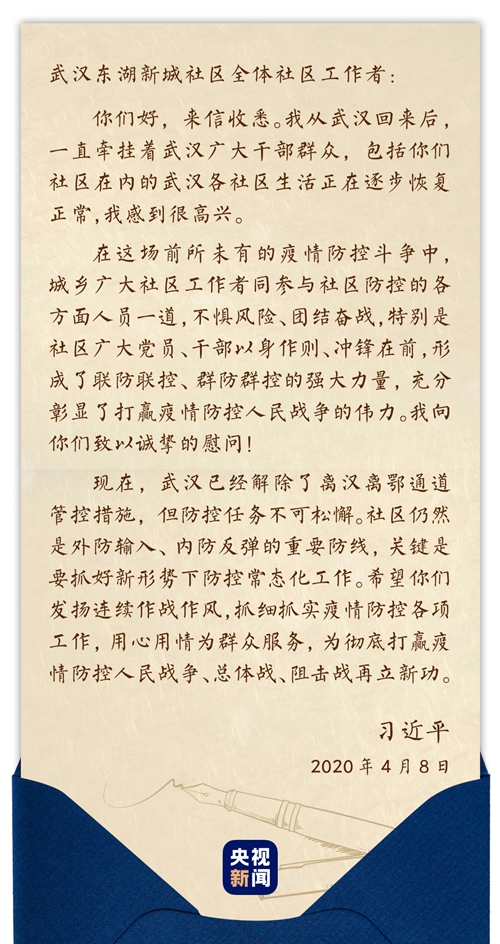 武汉东湖新城社区全体社区工作者：
你们好，来信收悉。我从武汉回来后，
一直牵挂着武汉广大干部群众，包括你们
社区在内的武汉各社区生活正在逐步恢复
正常，我感到很高兴。
在这场前所未有的疫情防控斗争中，
城乡广大社区工作者同参与社区防控的各
方面人员一道，不惧风险、团结奋战，特别是
社区广大党员、干部以身作则、冲锋在前，形
成了联防联控、群防群控的强大力量，充分
彰显了打赢疫情防控人民战争的伟力。我向
你们致以诚挚的慰问！
现在，武汉已经解除了离汉离鄂通道
管控措施，但防控任务不可松懈。社区仍然
是外防输入、内防反弹的重要防线，关键是
要抓好新形势下防控常态化工作。希望你们
发扬连续作战作风，抓细抓实疫情防控各项
工作，用心用情为群众服务，为彻底打赢疫
情防控人民战争、总体战、阻击战再立新功。
习近平
2020年4月8日
央视
新闻